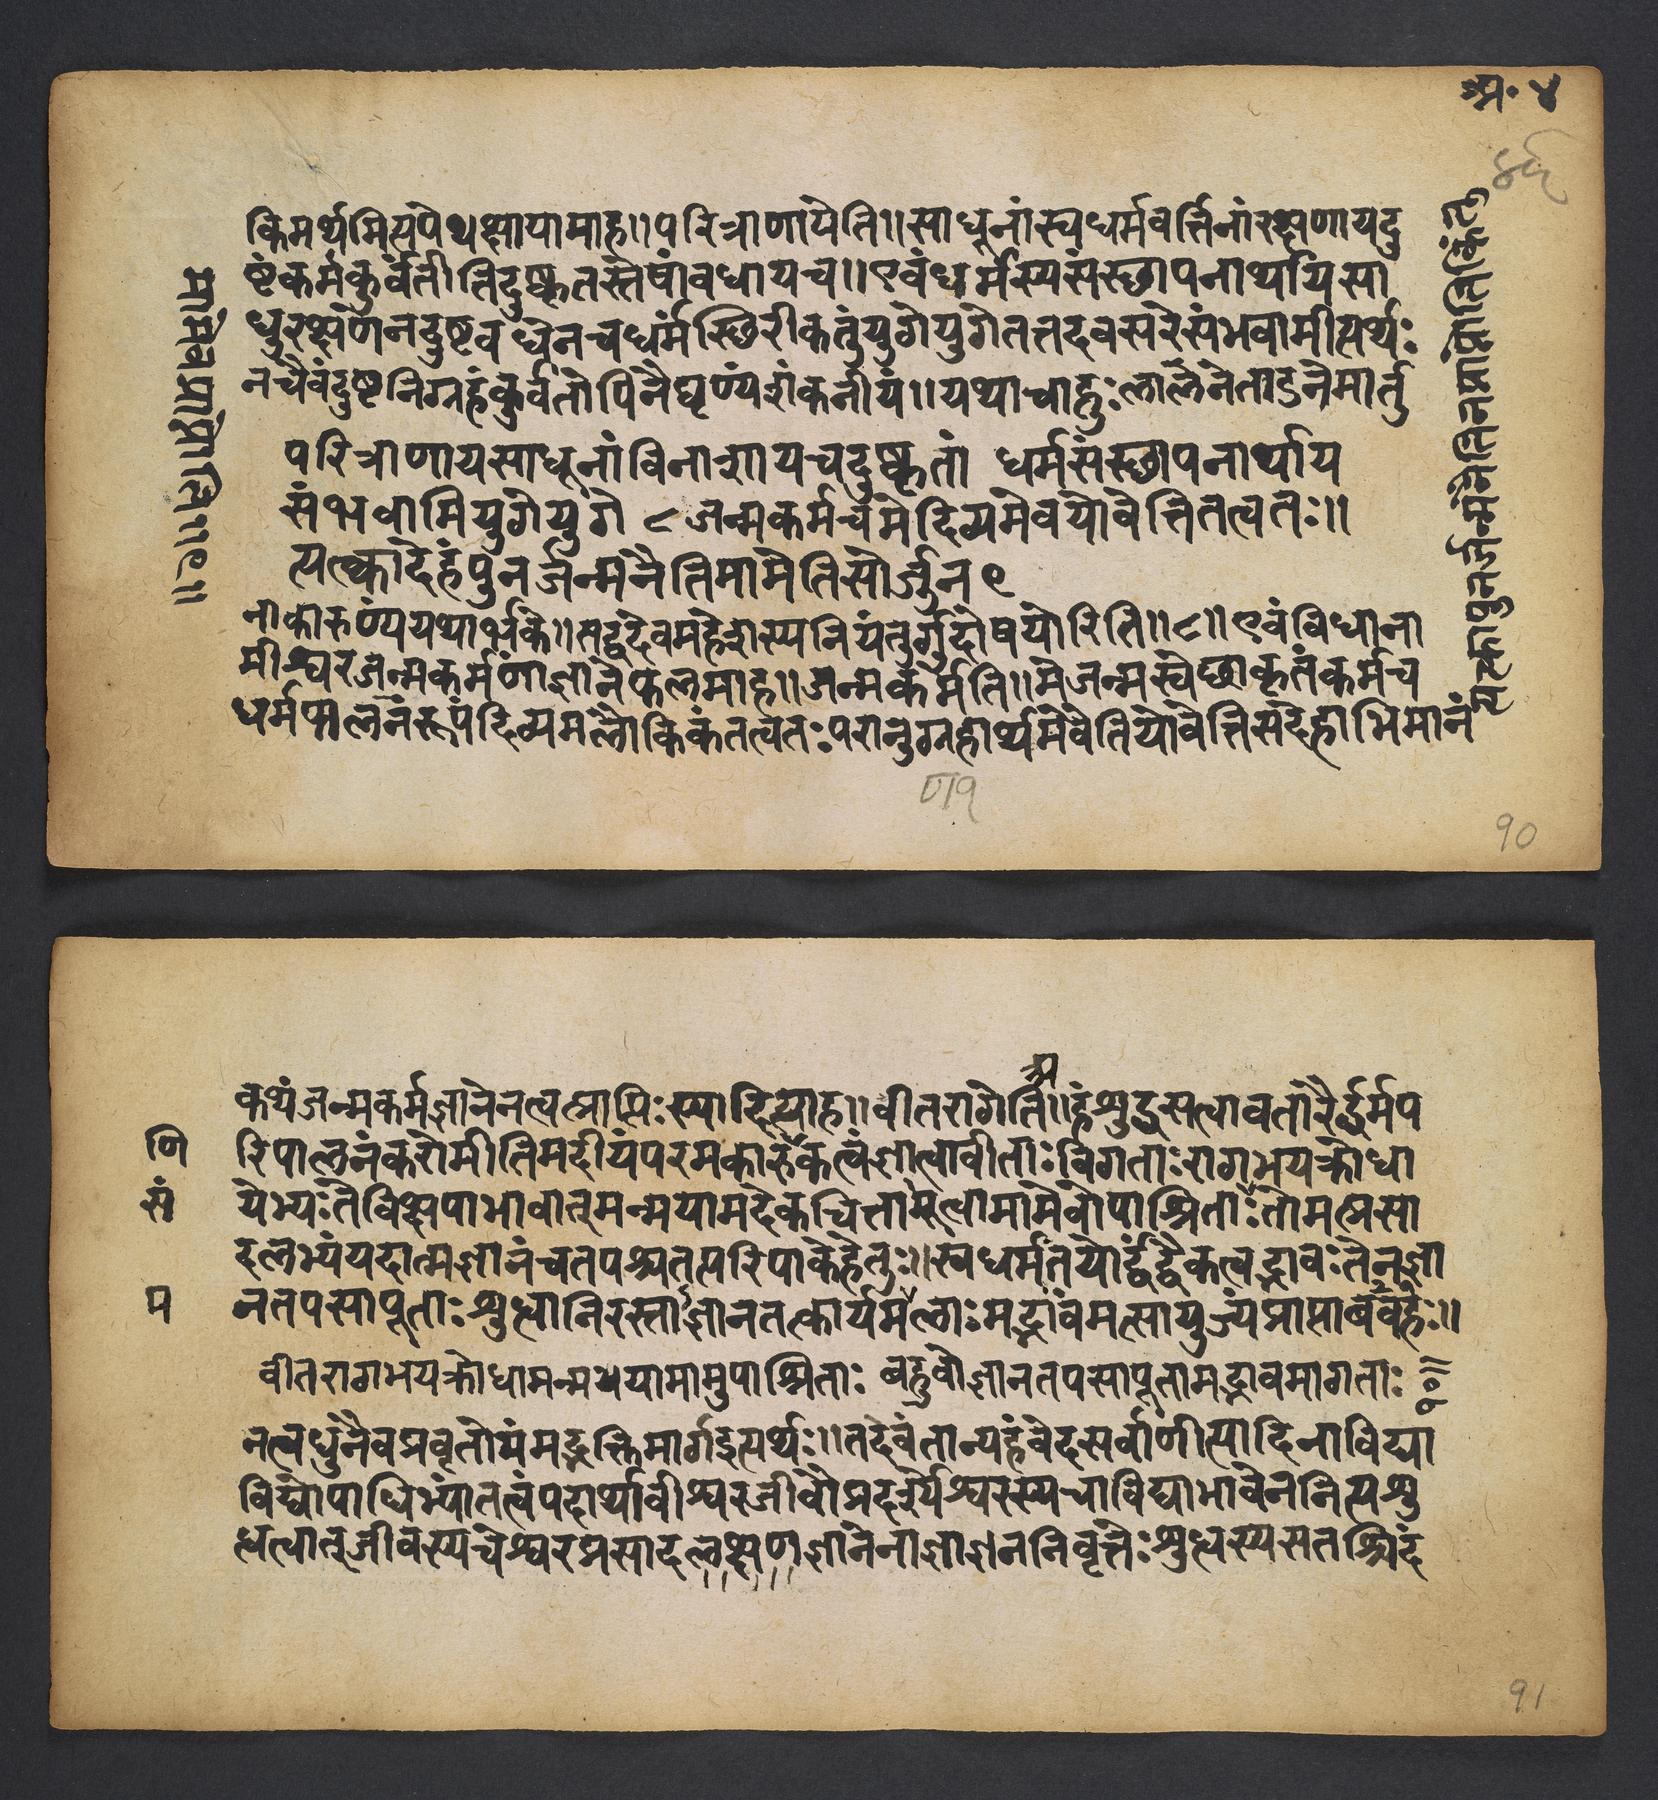 अ॰ ४
४५
किमर्थमित्यपेक्षायामाह॥परित्राणायेति॥साधूनांस्वधर्मवर्त्तिनांरक्षणायदु
ष्टंकर्मकुर्वंतीतिदुष्कृतस्तेषांवधायच॥एवंधर्मस्यसंस्छापनार्थायसा
धुरक्षणेनदुष्टवधेनचधर्मंस्छिरीकर्तुंयुगेयुगेतत्तदवसरेसंभवामीत्यर्थः
नचैवंदुष्टनिग्रहंकुर्वतोपिनैघृण्यंशंकनीयं॥यथाचाहुःलालनेताडनेमार्तु
परित्राणायसाधूनांविनाशायचदुष्कृतां धर्मसंस्छापनार्थाय
संभवामियुगेयुगे ८ जन्मकर्मचमेदिव्यमेवयोवेत्तितत्वतः॥
त्यत्क्कादेहंपुनर्जन्मनैतिमामेतिसोर्जुन ९
र्नाकारुण्यंयथार्भके॥तद्वदेवमहेशस्यनियंतुर्गुदोषयोरिति॥८॥एवंविधाना
मीश्वरजन्मकर्मणांज्ञानेफलमाह॥जन्मकर्मेति॥मेजन्मस्वेछाकृतंकर्मच
धर्मपालनंरूपंदिव्यमलौकिकंतत्वतःपरानुग्रहार्थमेवेतियोवेत्तिसदेहाभिमानं
त्यत्क्कापुनर्जन्मनैति
मामेवप्राप्नोति॥९॥
ण१
90
कथंजन्मकर्मज्ञानेनत्वत्प्राप्तिःस्यादित्याह॥वीतरागेति॥अहंशुद्धसत्वावतारैर्द्धर्मप
रिपालनंकरोमीतिमदीयंपरमकारुकत्वंज्ञात्वावीताःविगताःरागभयक्रोधा
णि
येभ्यःतेविक्षेपाभावात्मन्मयामदेकचित्ताभूत्वामामेवोपाश्रिताःतोमत्प्रसा
सं
दलभ्यंयदात्मज्ञानंचतपश्चतत्परिपाकेहेतुः॥स्वधर्मतयोर्द्वंद्वैकत्वद्भावःतेनज्ञा
नतपसापूताःशुध्धानिरस्ताज्ञानतत्कार्यमलाःमद्भावंमत्सायुज्यंप्राप्ताबवहः॥
म
वीतरागभयक्रोधामन्मययामामुपाश्रिताः बहुवोज्ञानतपसापूतामद्भावमागताः १०
नत्वधुनैवप्रवृतोयंमद्भक्तिमार्गइत्यर्थः॥तदेवंतान्यहंवेदसर्वाणीत्यादिनाविद्या
विद्योपाधिभ्यांतत्वंपदार्थावीश्वरजीवौप्रदर्श्येश्वरस्यचाविद्याभावेननित्यशु
ध्धत्वात्जीवस्यचेश्वरप्रसादलक्षणज्ञानेनाज्ञाज्ञननिवृत्तेःशुध्धस्यसतश्चिदं
91